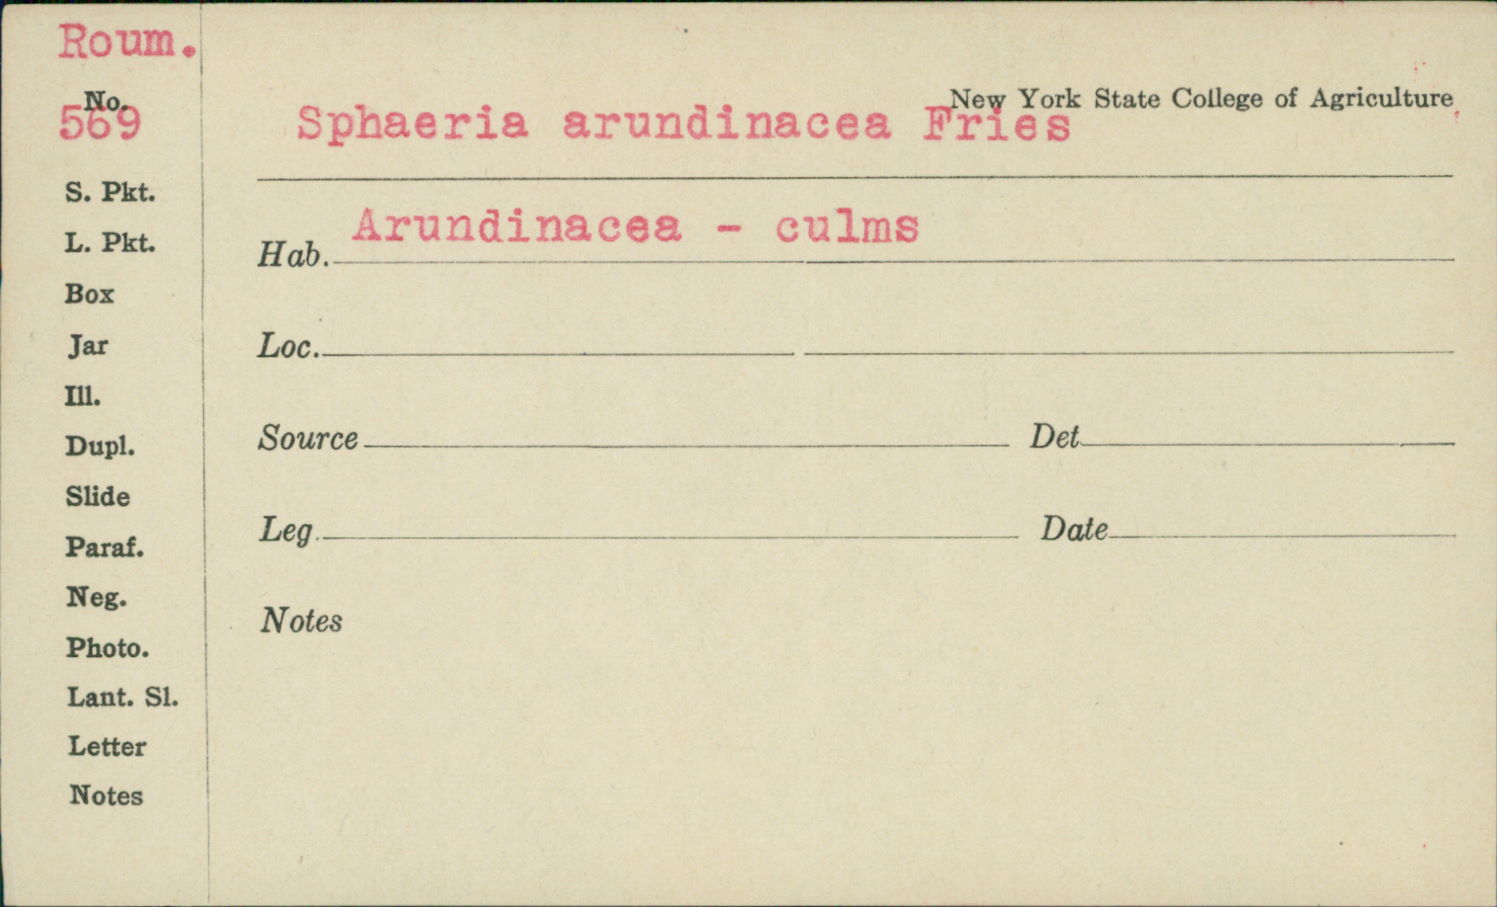 Roum.
No.
569
New York State College of Agriculture
Sphaeria arundinacea Fries
S. Pkt.
L. Pkt.
Box
Jar
Ill.
Dupl.
Slide
Paraf.
Neg.
Photo.
Lant. Sl.
Letter
Notes
Hab. Arundinacea - culms
Loc.
Source Det
Leg. Date
Notes